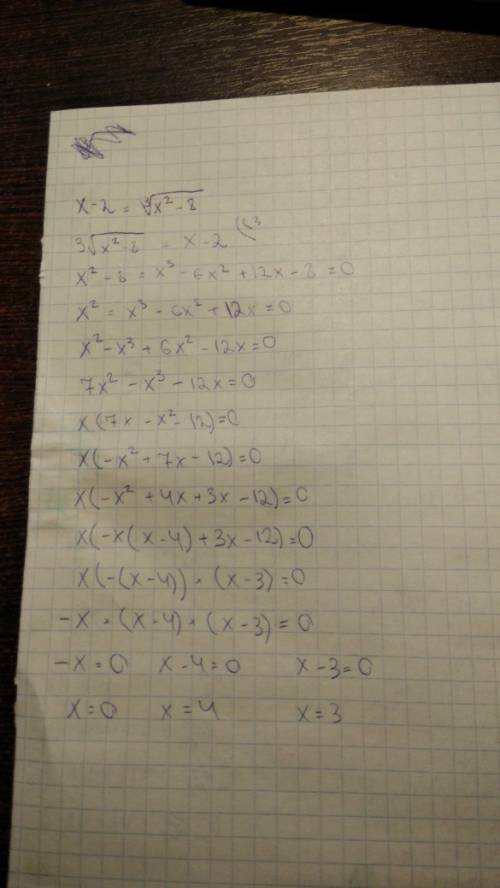 x-2 = ∛(x²-8)
3√(x²-8) = x-2 (³
x²-8 = x³-6x²+12x-8=0
x² = x³-6x²+12x=0
x²-x³+6x²-12x=0
7x²-x³-12x=0
x(7x-x²-12)=0
x(-x²+7x-12)=0
x(-x²+4x+3x-12)=0
x(-x(x-4)+3x-12)=0
x(-(x-4))·(x-3)=0
-x·(x-4)·(x-3)=0
-x=0 x-4=0 x-3=0
x=0 x=4 x=3